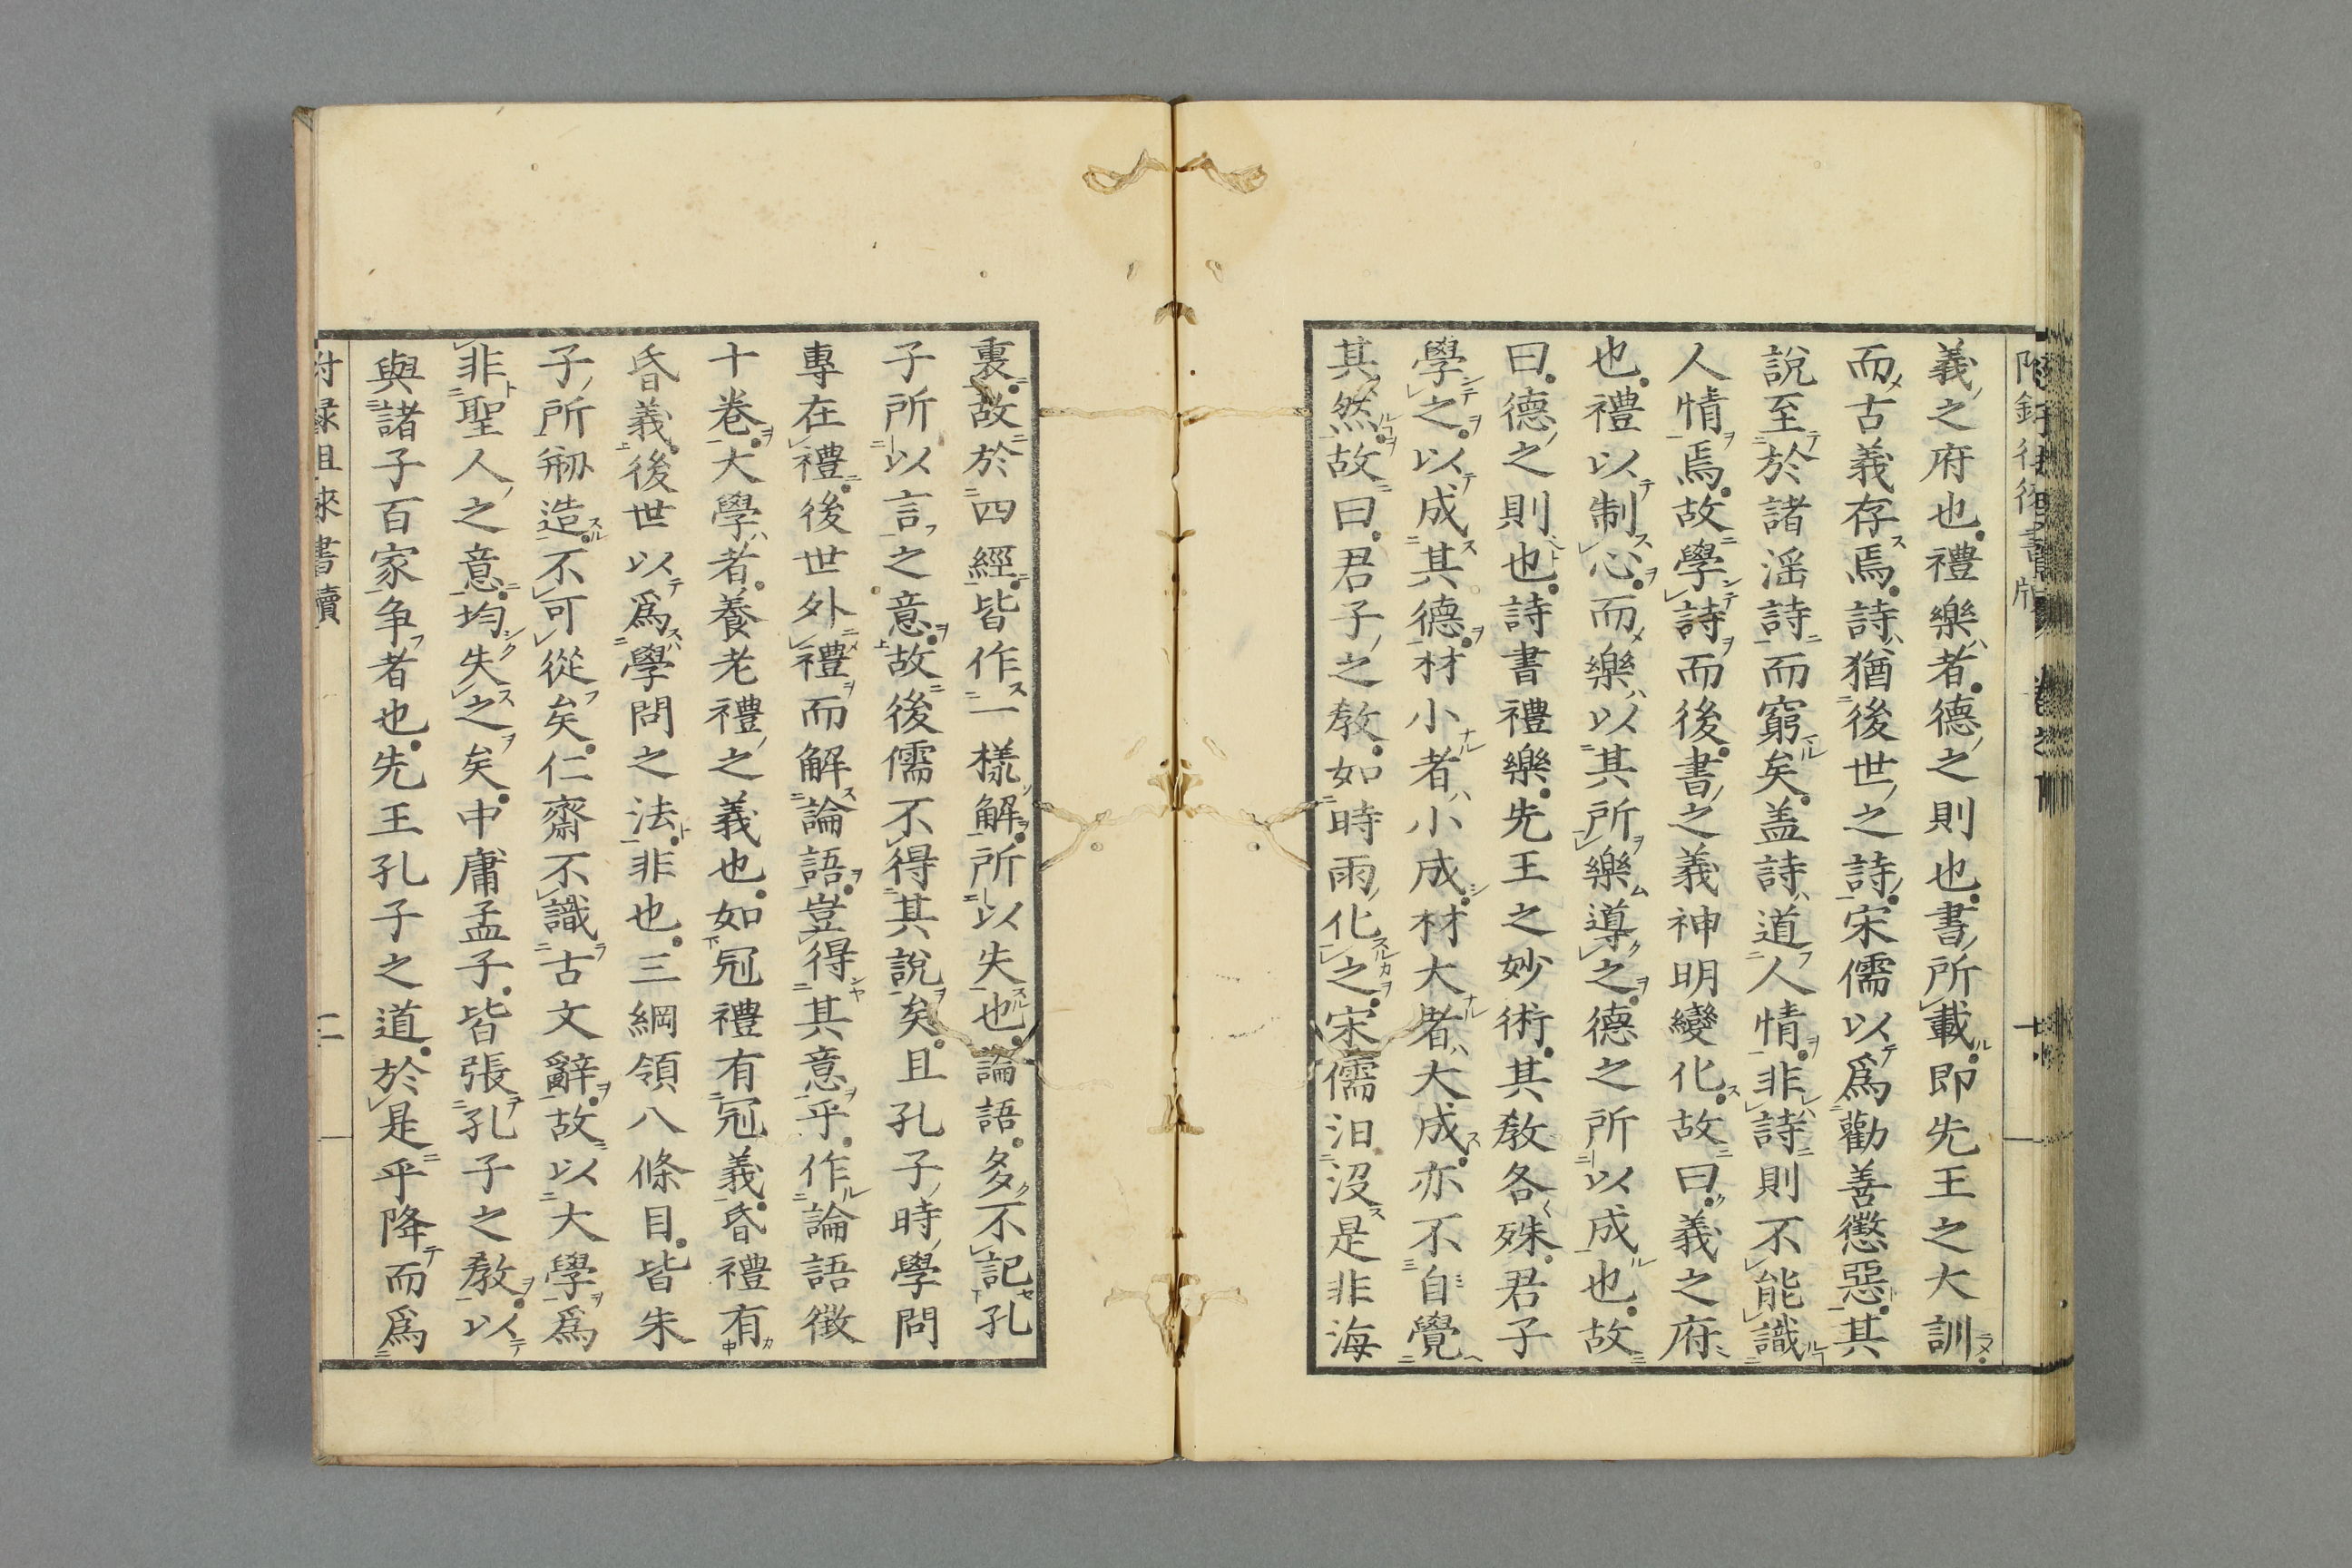 義之府也禮樂者德之則也書所載即先王之大訓
而古義存焉詩猶後世之詩宋儒以爲勸善懲惡其
說至於諸滛詩而窮矣盖詩道人情非詩則不能識
人情焉故學詩而後書之義神明變化故曰義之府
也禮以制心而樂以其所樂導之德之所以成也故
曰德之則也詩書禮樂先王之妙術其教各殊君子
學之以成其德材小者小成材大者大成亦不自覺
其然故曰君子之教如時雨化之宋儒汩没是非海
裏故於四經皆作一樣解所以失也論語多不記孔
子所以言之意故後儒不得其說矣且孔子時學問
專在禮後世外禮而解論語豈得其意乎作論語徴
十卷大學者養老禮之義也如冠禮有冠義昏禮有
昏義後世以爲學問之法非也三綱領八條目皆朱
子所剏造不可從矣仁齋不識古文辭故以大學爲
非聖人之意均失之矣中庸孟子皆張孔子之教以
與諸子百家争者也先王孔子之道於是乎降而爲
附録徂徠書牘 二